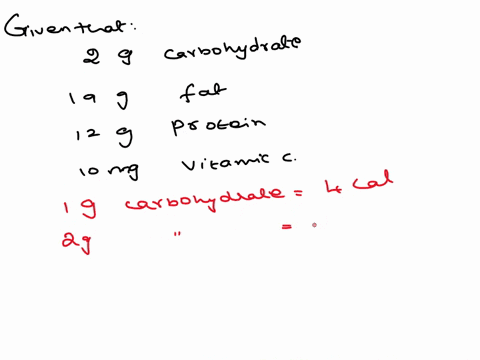 Given that:
2 g carbohydrate
19 g fat
12 g Protein
10 mg Vitamic C.
1 g carbohydrate = 4 Cal
2g " =